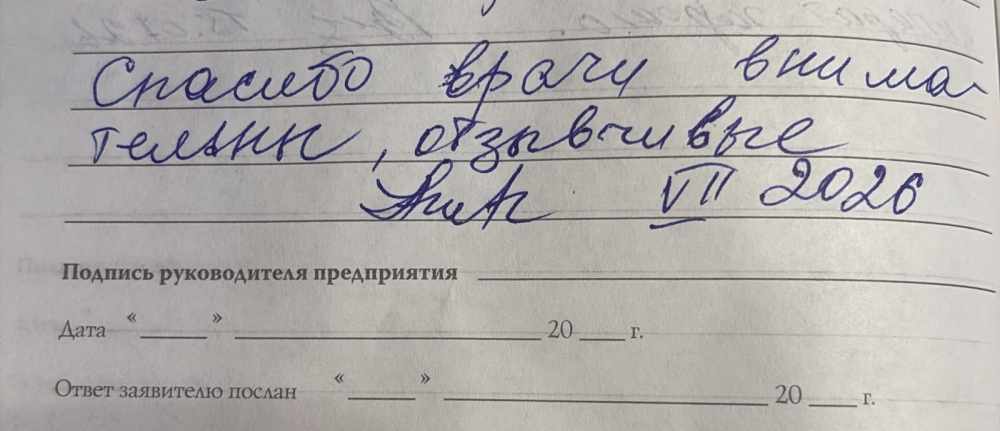 Спасибо врачу внима-
тельны, отзывчивые
VII 2026
Подпись руководителя предприятия
Дата « » 20 г.
Ответ заявителю послан « » 20 г.